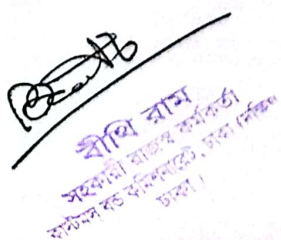 বীথি রায়
সহকারী রাজস্ব কর্মকর্তা
কাস্টমস বন্ড কমিশনারেট, ঢাকা (দক্ষিণ)
ঢাকা।